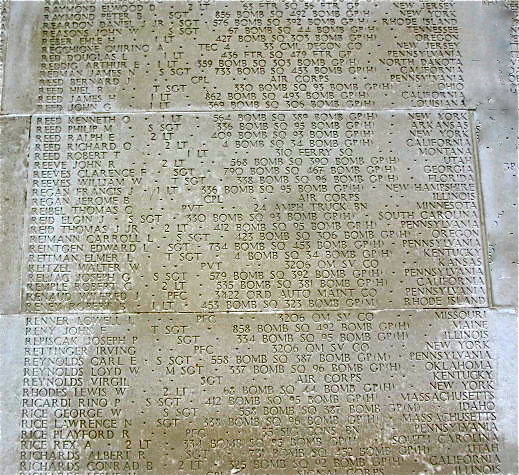 RAYMOND ELWOOD D 2 LT 63 FTR SQ 56 FTR GP NEW JERSEY
RAYMOND PETER B SGT 856 BOMB SQ 492 BOMB GP(H) NEW YORK
REARDON DENIS J JR S SGT 576 BOMB SQ 392 BOMB GP(H) RHODE ISLAND
REASONS JOHN W S SGT 67 BOMB SQ 44 BOMB GP(H) TENNESSEE
REBER PHIL 1 LT 427 BOMB SQ 303 BOMB GP(H) OREGON
RECCHIONE QUIRINO A TEC 4 33 CML DECON CO NEW JERSEY
RED DOUGLAS 1 LT 436 FTR SQ 479 FTR GP PENNSYLVANIA
REDDIG ARTHUR E 1 LT 359 BOMB SQ 303 BOMB GP(H) NORTH DAKOTA
REDMAN JAMES N S SGT 733 BOMB SQ 453 BOMB GP(H) CALIFORNIA
REED BERNARD CPL AIR CORPS PENNSYLVANIA
REED HIEL R T SGT 330 BOMB SQ 93 BOMB GP(H) OHIO
REED JAMES H 1 LT 862 BOMB SQ 493 BOMB GP(H) CALIFORNIA
REED JOHN G 1 LT 369 BOMB SQ 306 BOMB GP(H) LOUISIANA
REED KENNETH O 1 LT 564 BOMB SQ 389 BOMB GP(H) NEW YORK
REED PHILIP M S SGT 336 BOMB SQ 95 BOMB GP(H) ARKANSAS
REED RALPH E 2 LT 409 BOMB SQ 93 BOMB GP(H) NEW YORK
REED RICHARD O 2 LT 4 BOMB SQ 34 BOMB GP(H) CALIFORNIA
REED ROBERT T 1 LT 310 FERRY SQ MONTANA
REEVE JOHN R 2 LT 568 BOMB SQ 390 BOMB GP(H) UTAH
REEVES CLARENCE F SGT 790 BOMB SQ 467 BOMB GP(H) GEORGIA
REEVES WILLIAM W T SGT 338 BOMB SQ 96 BOMB GP(H) FLORIDA
REEVS FRANCIS J 1 LT 336 BOMB SQ 95 BOMB GP(H) NEW HAMPSHIRE
REGAN JEROME B CPL AIR CORPS ILLINOIS
REIBEL THOMAS G PVT 24 AMPH TRUCK BN MINNESOTA
REID ELGIN J S SGT 330 BOMB SQ 93 BOMB GP(H) SOUTH CAROLINA
REID THOMAS J JR 2 LT 412 BOMB SQ 95 BOMB GP(H) PENNSYLVANIA
REIMANN CARROLL L S SGT 423 BOMB SQ 306 BOMB GP(H) OREGON
REINTGEN EDWARD L SGT 734 BOMB SQ 453 BOMB GP(H) PENNSYLVANIA
REITMAN ELMER L T SGT 4 BOMB SQ 34 BOMB GP(H) KENTUCKY
REITZEL WALTER W PVT 3206 QM SV CO KANSAS
REJMAC JOSEPH G S SGT 579 BOMB SQ 392 BOMB GP(H) PENNSYLVANIA
REMPLE ROBERT G 2 LT 535 BOMB SQ 381 BOMB GP(H) CALIFORNIA
RENAUD J PFC 3422 ORD AUTO MAINT CO PENNSYLVANIA
1 LT 453 BOMB SQ 323 BOMB GP(M) RHODE ISLAND
RENNER LOWELL J PFC 3206 QM SV CO MISSOURI
RENY JOHN E T SGT 858 BOMB SQ 492 BOMB GP(H) MAINE
REPISCAK JOSEPH P S SGT 334 BOMB SQ 95 BOMB GP(H) ILLINOIS
RETTINGER IRVING PFC 3206 QM SV CO NEW YORK
REYNOLDS CARL E S SGT 558 BOMB SQ 387 BOMB GP(M) PENNSYLVANIA
REYNOLDS LOYD W M SGT 337 BOMB SQ 96 BOMB GP(H) OKLAHOMA
REYNOLDS VIRGIL SGT AIR CORPS KENTUCKY
RHODES LEWIS W 2 LT 68 BOMB SQ 44 BOMB GP(H) NEW YORK
RICARDI RINO P S SGT 412 BOMB SQ 95 BOMB GP(H) MASSACHUSETTS
RICE GEORGE W S SGT 558 BOMB SQ 387 BOMB GP(M) IDAHO
RICE LAWRENCE N SGT 338 BOMB SQ 96 BOMB GP(H) MASSACHUSETTS
RICE PLAYFORD R PFC CONS BN PENNSYLVANIA
RICE REX A 2 LT 334 BOMB SQ 95 BOMB GP(H) SOUTH CAROLINA
RICHARDS ALBERT R SGT 731 BOMB SQ 452 BOMB GP(H) UTAH
RICHARDS CONRAD B 2 LT BOMB SQ 92 BOMB GP(H) CALIFORNIA
ILLINOIS